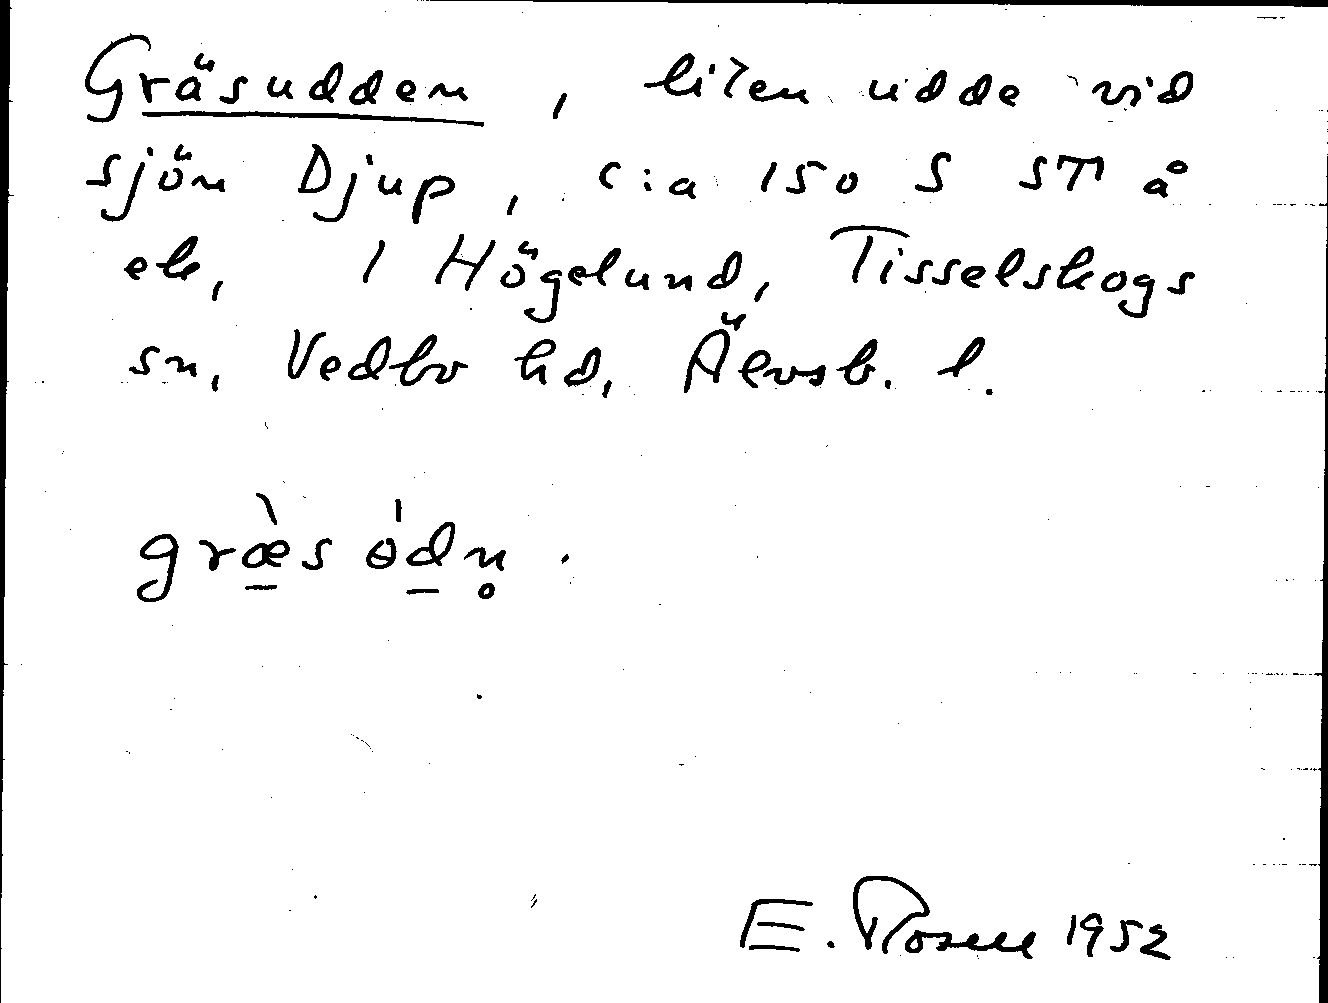 Gräsudden, liten udde vid
sjön Djup, c:a 150 S ST å
ek, 1 Högelund, Tisselskogs
sn, Vedbo hd, Älvsb. l.
græ̠̀s ɵ́d̠n̥.
E. Rosell 1952